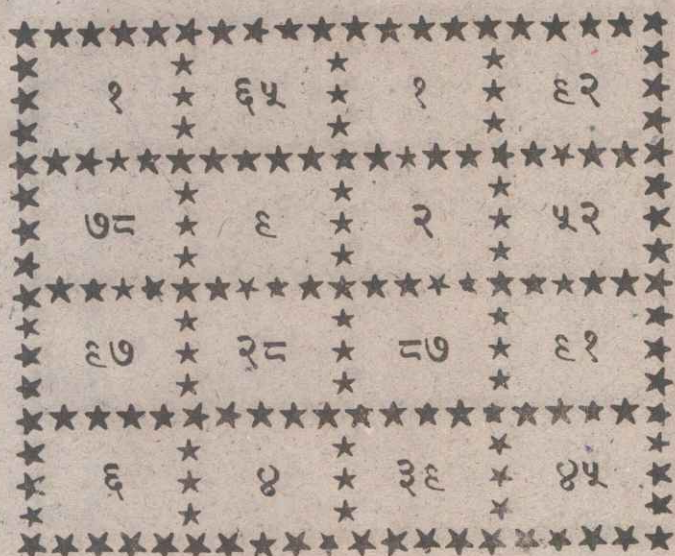 १ ६५ १ ९२
७८ ९ २ ५२
९७ २८ ८७ ९१
६ ४ ३९ ४५